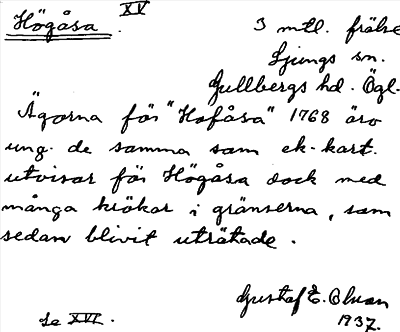 Högåsa. XV
3 mtl. frälse
Ljungs sn.
Gullbergs hd. Ögl.
Ägorna för "Hofåsa" 1768 äro
ung. de samma som ek-kart.
utvisar för Högåsa dock med
många krökar i gränserna, som
sedan blivit uträtade.
Gustaf E. Olsson
1937.
Se XVI.